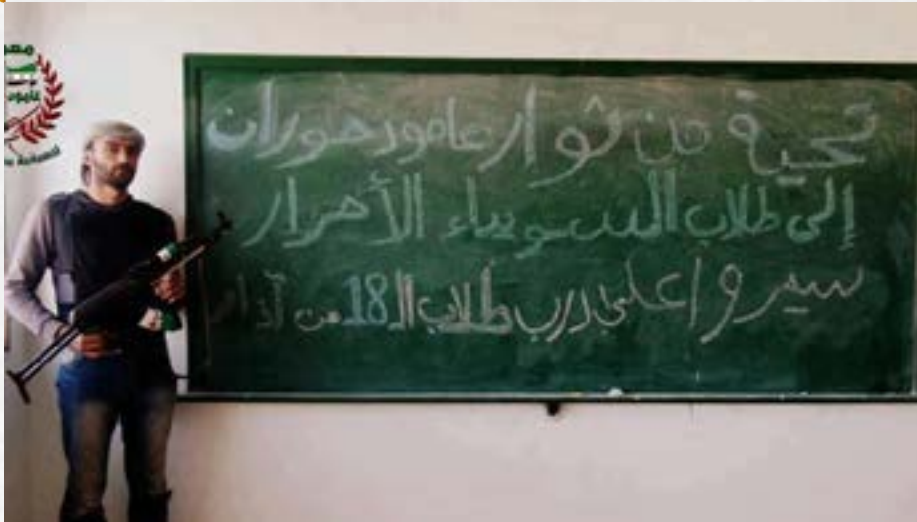 تحية من ثوار عامود حوران
إلى طلاب السويداء الأحرار
سيروا على درب طلاب الـ 18 من آذار